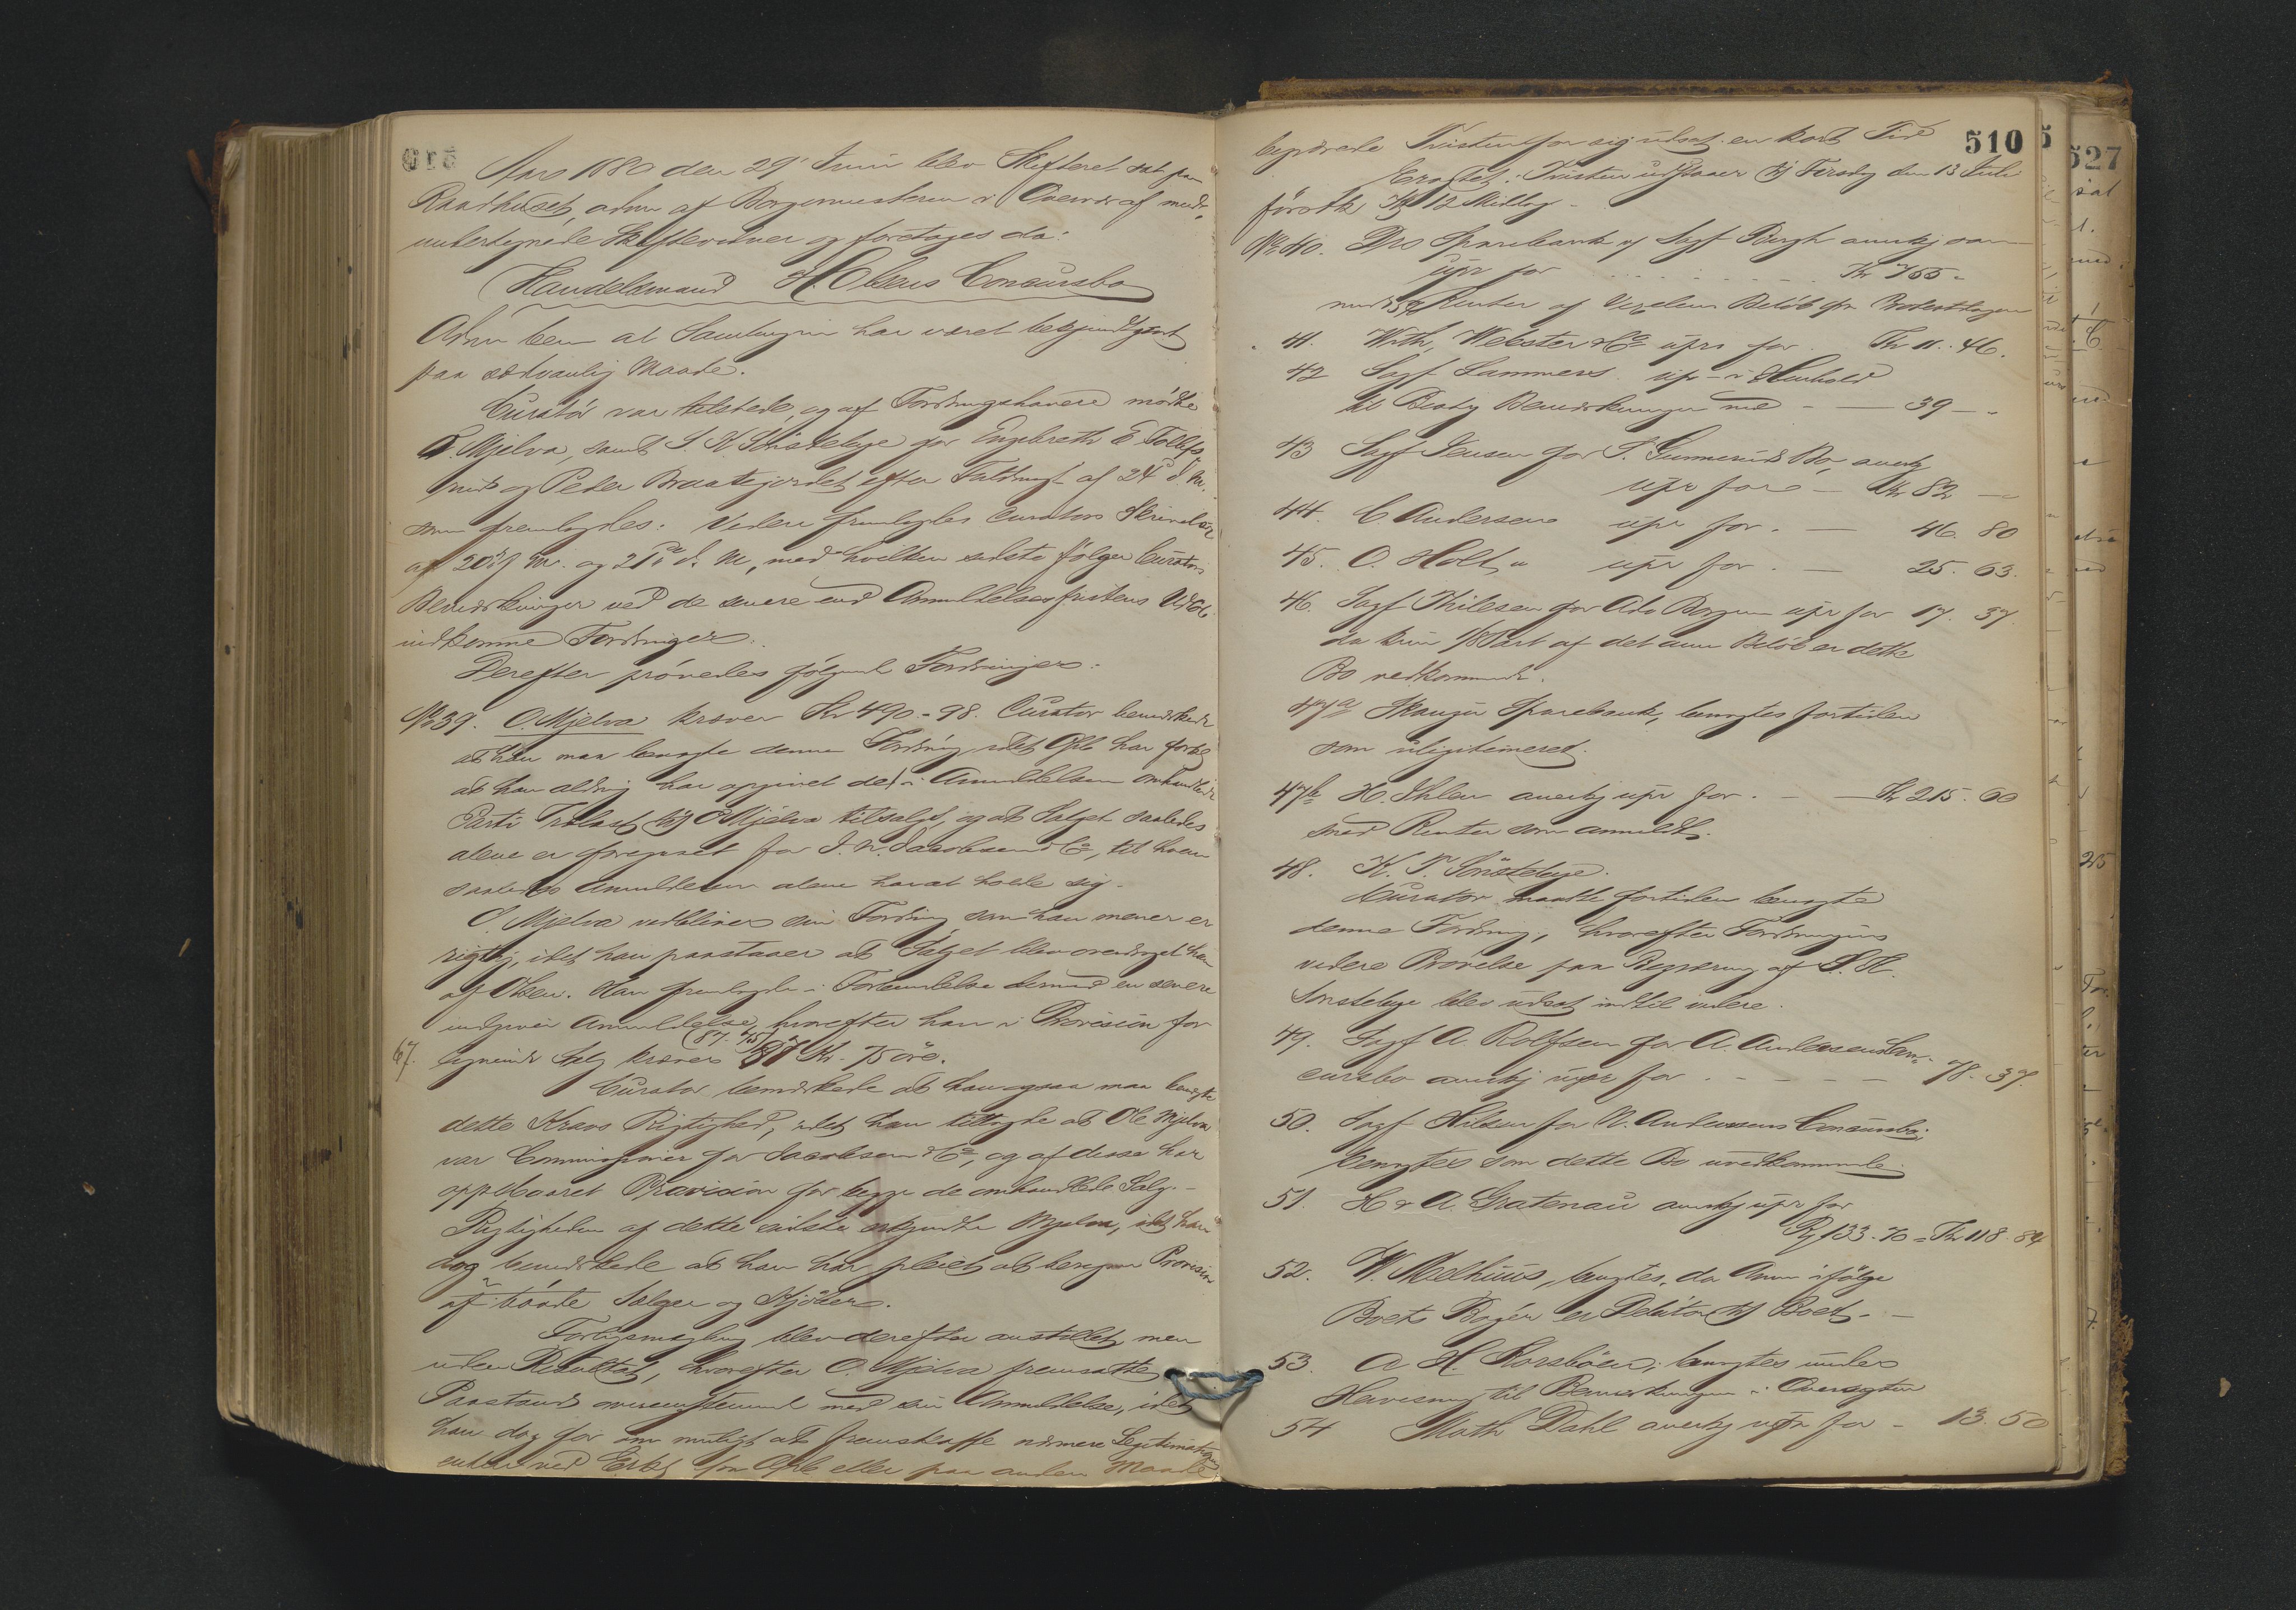 Aar 1880 den 29' Juni blev Skifteret sat paa
Raadhuset, adm af Borgermesteren i Overvær af med-
undertegnede Skiftevidner og foretages da:
Handelsmand H. Olsens Concursbo
Adm bem at Samlingen har været bekjendtgjort
paa sædvanlig Maade.
Curator var tilstede, og af Fordringshavere mødte
O. Mjelva, samt S. H. Sønsteby for Engebreth E Tollefs
rud og Peder Braatejordet efter Fuldmagt af 24 d. M.
som fremlagdes. Videre fremlagdes Curators Skrivelser
af 20 f M. og 21 d. M, med hvilken sidste følger Curators
Bemærkninger ved de senere end Anmeldelsesfristens Udløb
indkomne Fordringer.
Derefter prøvedes følgende Fordringer:
No 39. O. Mjelva kræver Kr 490-98. Curator bemærkede
at han maa benægte denne Fordring idet Opb har forkl
at han aldrig har opgivet det i Anmeldelsen omhandlede
Parti Trælast til O Mjelva tilsalgs, og at Salget saaledes
alene er foregaaet for J. N. Jacobsen & Co, til hvem
saaledes Anmelderen alene har at holde sig.
O. Mjelva vedbliver sin Fordring som han mener er
rigtig, idet han paastaaer at Salget blev overdraget ham
af Olsen. Han fremlagde i Forbindelse dermed en senere
indgiven Anmeldelse, hvorefter han i Provision for
67. lignende Salg kræver (87. 75) 87 Kr. 75 øre.
Curator bemærkede at han ogsaa maa benægte
dette Kravs Rigtighed, idet han tillagde at Ole Mjelva
var Commissionær for Jacobsen & Co, og af disse har
oppebaaret Provision for begge de omhandlede Salg.-
Rigtigheden af dette sidste erkjendte Mjelva, idet han
dog bemærkede at han har pleiet at beregne Provision
af baade Sælger og Kjøber.
Forligsmægling blev derefter anstillet, men
uden Resultat, hvorefter O. Mjelva fremsatte
Paastand overensstemmende med sin Anmeldelse, idet
han dog for om muligt at fremskaffe nærmere Legitimation
enten ved Erkl fra Opb eller paa anden Maade
510
begjærede Tvisten for sig udsat en kort Tid
Eragtet: Tvisten udstaaer til Tirsdag den 13 Juli
førstk Kl 12 Middag -
No 40. Drs Sparebank v Sagf Bergh anerkj som
upr for Kr 755 -
med Renter af Vexelens Beløb fra Protestdagen
41. With, Webster & Co upr for . Kr 11. 46.
42 Sagf Lammers upr i Henhold
til Bestyr Bemærkninger med - 39 -
43 Sagf Jensen for S. Gunneruds Bo, anerkj
upr for - Kr 82 -
44. C Andersen upr for . - 46. 80
45. O. Holt, upr for . - 25. 63.
46. Sagf Thilesen for Ado Borgen upr for 17. 37.
da kun 1/8 Part af det anm Beløb er dette
Bo vedkommende.
47a Skauger Sparebank, benægtes fortiden
som ulegitimeret.
47b H. Ihlen anerkj upr for . - Kr 215. 60
med Renter som anmeldt.
48. K. P. Sønsteby.
Curator maatte fortiden benægte
denne Fordring, hvorefter Fordringens
videre Prøvelse paa Begjæring af S. H.
Sønsteby blev udsat indtil videre.
49. Sagf A. Rolfsen for A. Andersens Con-
cursbo anerkj upr for . - - - 78. 37.
50. Sagf Hilsen for N. Andersens Concursbo,
benægtes som dette Bo uvedkommende
51. H & A. Gratenau anerkj upr for
Rm 133. 70 = Kr 118. 84
52. W. Melhuus, benægtes, da Anm ifølge
Boets Bøger er Debitor til Boet. -
53. A H. Korsbøen, benægtes under
Henvisning til Bemærkningen i Oversigten
54 Math Dahl anerkj upr for - 13. 50
527